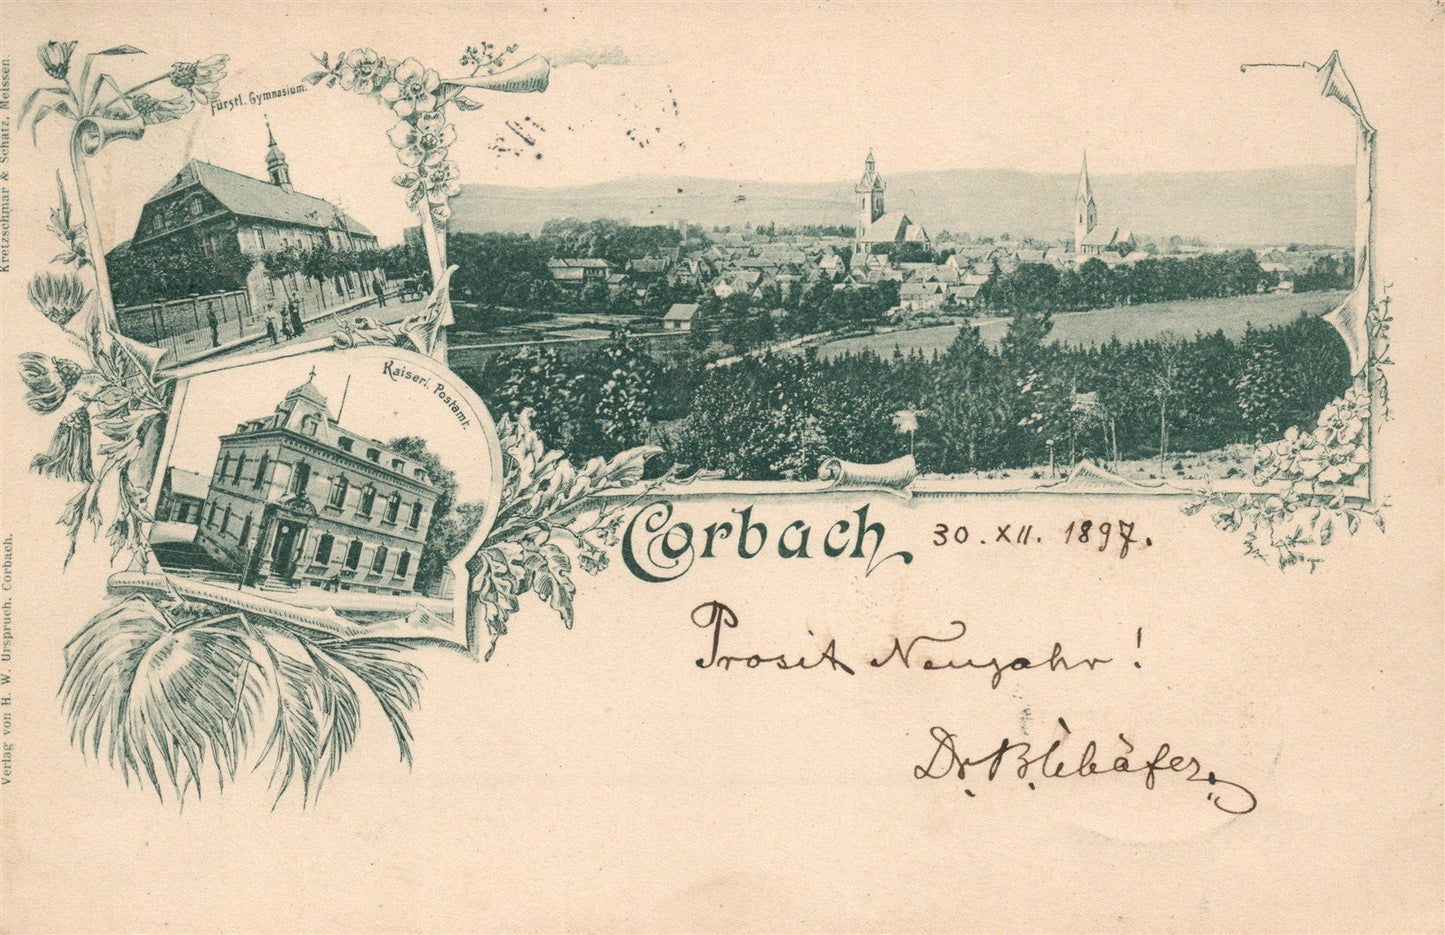 Fürstl. Gymnasium.
Kaiserl. Postamt.
Corbach 30. XII. 1897.
Prosit Neujahr!
Dr.
Kretzschmar & Schatz, Meissen.
Verlag von H. W. Urspruch. Corbach.